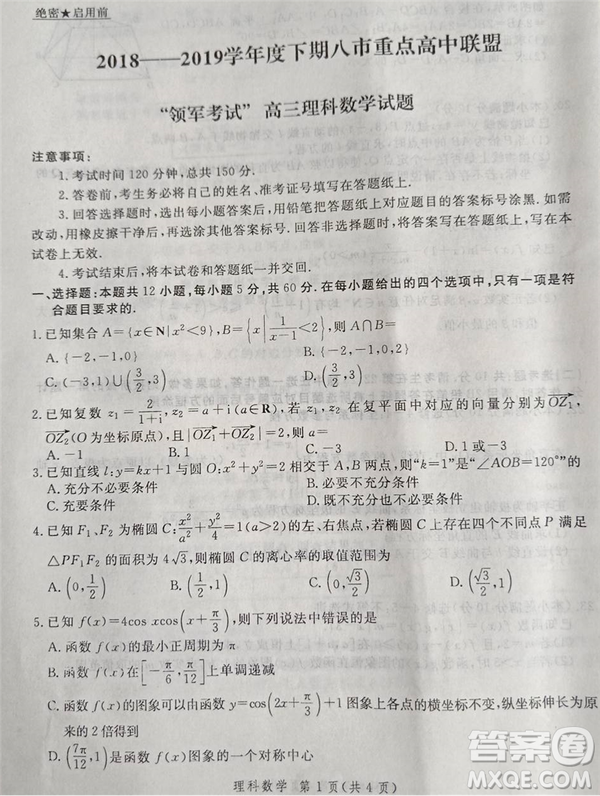 绝密★启用前
2018——2019学年度下期八市重点高中联盟
“领军考试” 高三理科数学试题
注意事项：
1.考试时间120分钟，总共150分.
2.答卷前，考生务必将自己的姓名、准考证号填写在答题纸上.
3.回答选择题时，选出每小题答案后，用铅笔把答题纸上对应题目的答案标号涂黑.如需
改动，用橡皮擦干净后，再选涂其他答案标号.回答非选择题时，将答案写在答题纸上.写在本
试卷上无效.
4.考试结束后，将本试卷和答题纸一并交回.
一、选择题：本题共12小题，每小题5分，共60分.在每小题给出的四个选项中，只有一项是符
合题目要求的.
1.已知集合 A={x∈N|x²<9}，B={x|1/(x-1)<2}，则A∩B=
A.{-2,-1,0} B.{-2,-1}
C.(-3,1)∪(3/2,3) D.{0,2}
2.已知复数 z₁=2/(1+i)，z₂=a+i(a∈R)，若 z₁，z₂ 在复平面中对应的向量分别为OZ₁，
OZ₂(O为坐标原点)，且|OZ₁+OZ₂|=2，则a=
A.1 B.-3 C.1或-3 D.-1或3
3.已知直线 l:y=kx+1 与圆O:x²+y²=2 相交于A,B两点，则“k=1”是“∠AOB=120°”的
A.充分不必要条件 B.必要不充分条件
C.充要条件 D.既不充分也不必要条件
4.已知 F₁、F₂ 为椭圆 C:x²/a²+y²/4=1(a>2)的左、右焦点，若椭圆 C 上存在四个不同点 P 满足
△PF₁F₂ 的面积为 4√3，则椭圆C的离心率的取值范围为
A.(0,1/2) B.(1/2,1) C.(0,√3/2) D.(√3/2,1)
5.已知函数 f(x)=4cosxcos(x+π/3)，则下列说法中错误的是
A.函数 f(x)的最小正周期为 π
B.函数 f(x)在[-π/6,π/12]上单调递减
C.函数 f(x)的图象可以由函数 y=cos(2x+π/3)+1/2 图象上各点的横坐标不变，纵坐标伸长为原
来的2倍得到
D.(7π/12,1)是函数 f(x)图象的一个对称中心
理科数学 第1页(共4页)
答案圈
MXQE.COM